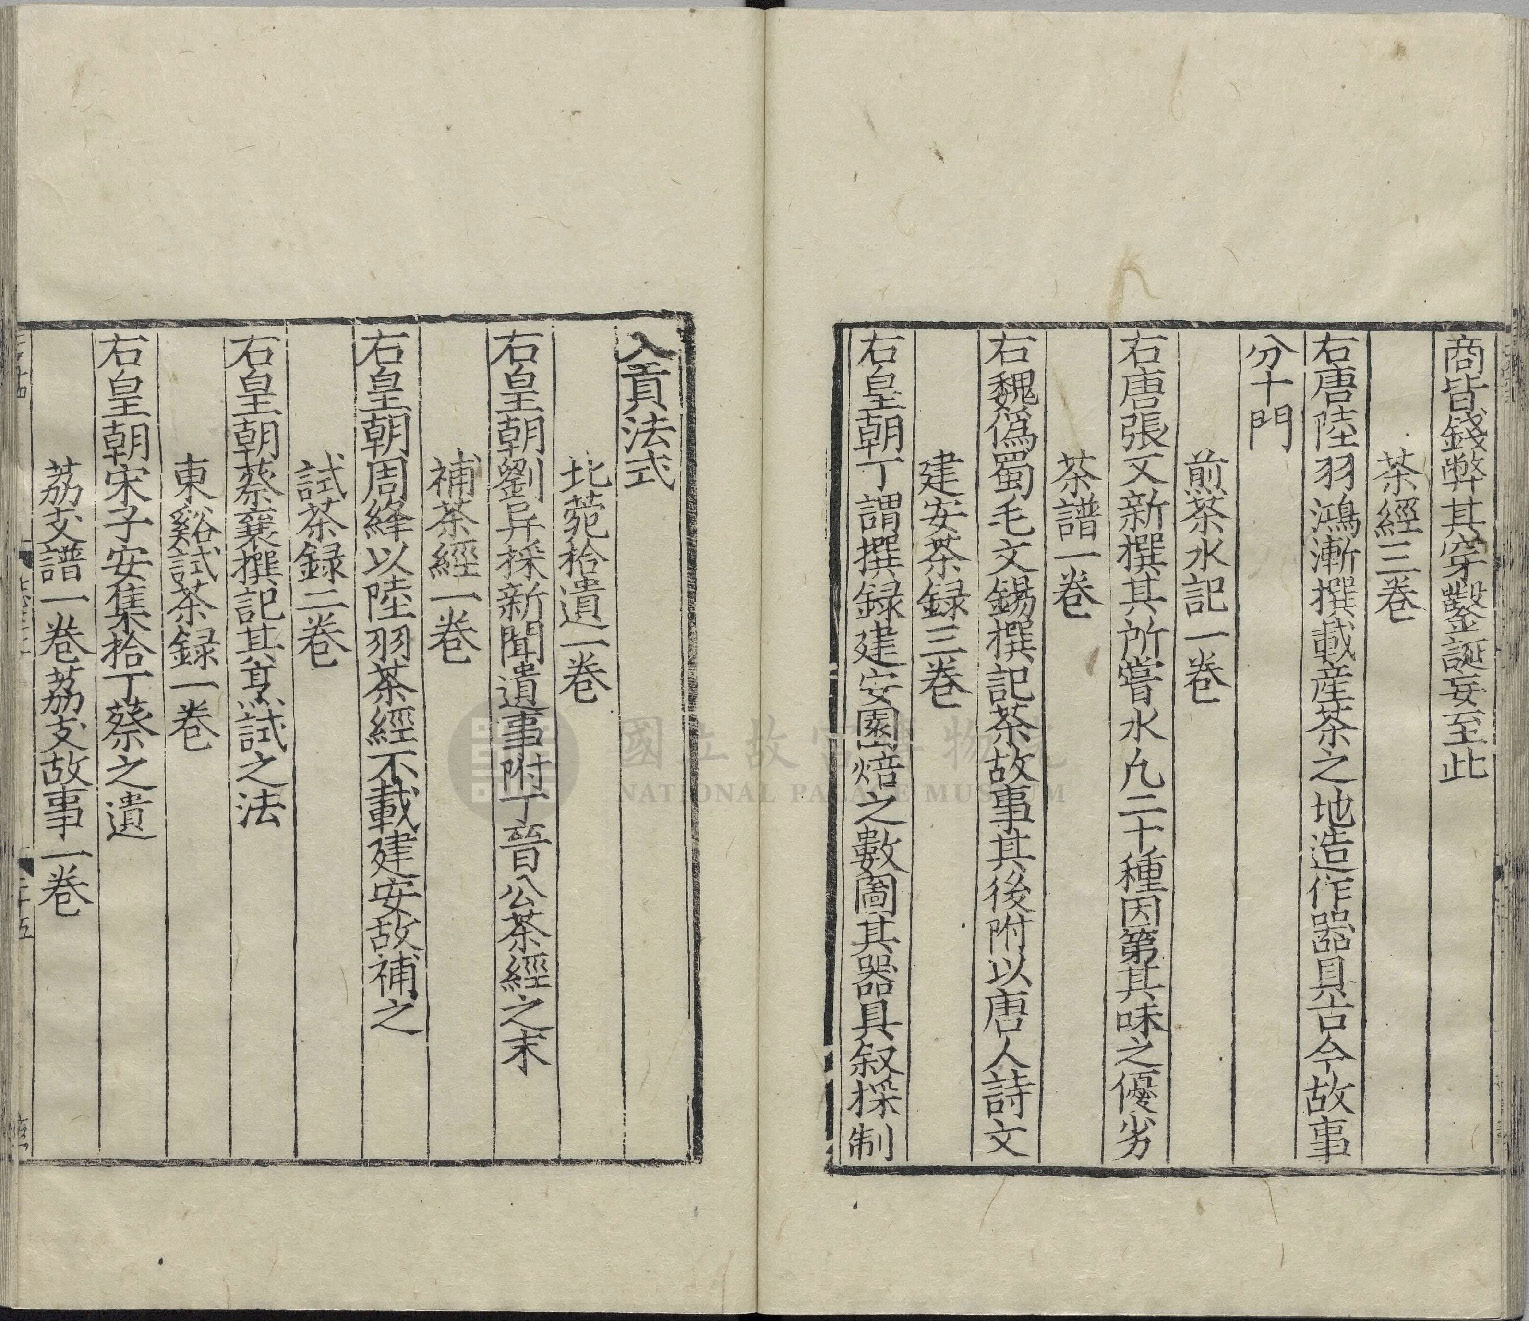 商皆錢弊其穿鑿誕妄至此
茶經三卷
右唐陸羽鴻漸撰載産茶之地造作器具古今故事
分十門
煎茶水記一卷
右唐張又新撰其所嘗水凡二十種因第其味之優劣
茶譜一卷
右魏僞蜀毛文錫撰記茶故事其後附以唐人詩文
建安茶録三卷
右皇朝丁謂撰録建安園焙之數圖其器具叙採制
入貢法式
北苑拾遺一卷
右皇朝劉异採新聞遺事附丁晉公茶經之末
補茶經一卷
右皇朝周絳以陸羽茶經不載建安故補之
試茶録二卷
右皇朝蔡襄撰記其烹試之法
東谿試茶録一卷
右皇朝宋子安集拾丁蔡之遺
荔支譜一卷荔支故事一卷
國立故宮博物院
NATIONAL PALACE MUSEUM